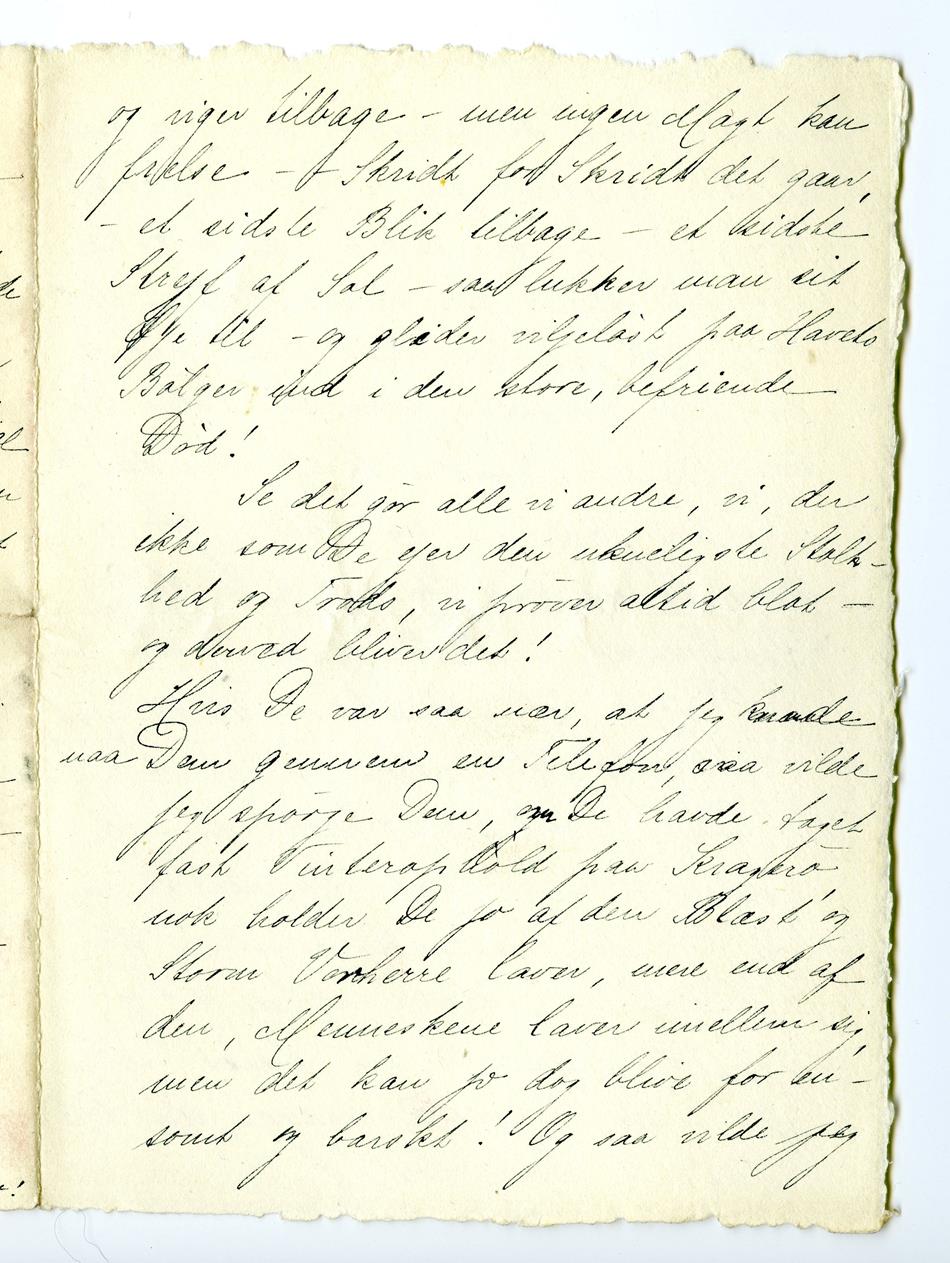 og viger tilbage – men ingen Magt kan
frelse – – Skridt for Skridt det gaar,
– et sidste Blik tilbage – et sidste
Strejf af Sol – saa lukker man sit
Øje til – og glider viljeløst paa Havets
Bølger ind i den store, befriende
Død!
Se det gør alle vi andre, vi, der
ikke som De ejer den ukueligste Stolt-
hed og Trods, vi prøver altid blot –
og derved bliver det!
Hvis De var saa nær, at jeg kunde
naa Dem gennem en Telefon, saa vilde
jeg spørge Dem, om De havde taget
fast Vinterophold paa Kragerø
nok holder De jo af den Blæst og
Storm Vorherre laver, mere end af
den, Menneskene laver imellem sig,
men det kan jo dog blive for en-
somt og barskt! Og saa vilde jeg
de
el
n
t
!